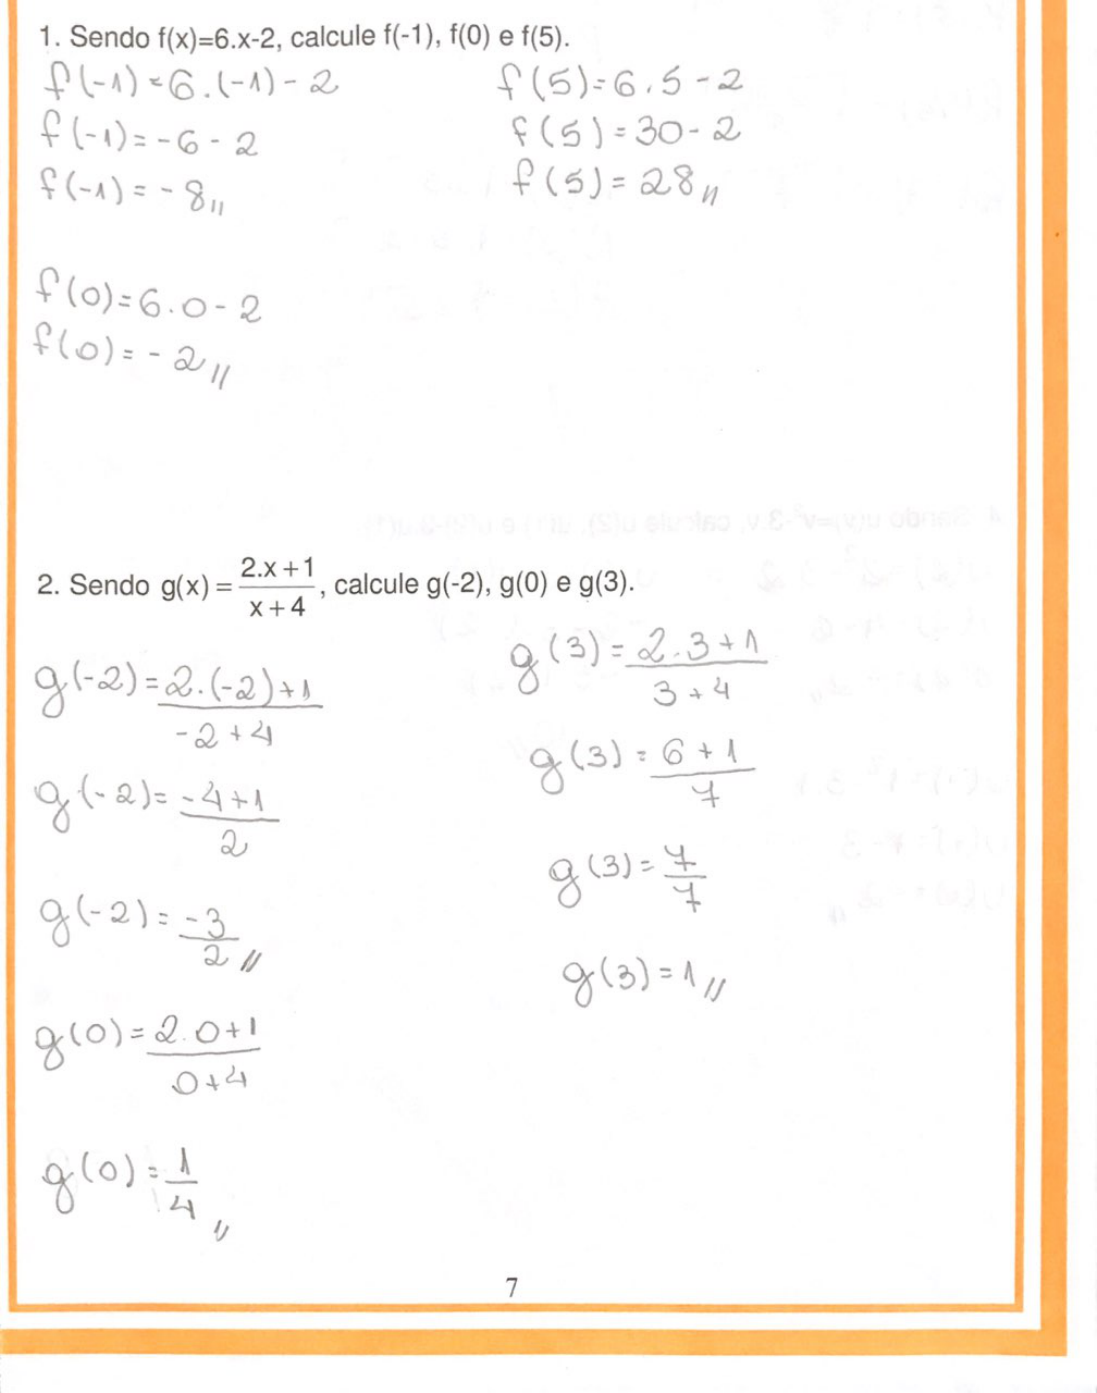 1. Sendo f(x)=6.x-2, calcule f(-1), f(0) e f(5).
f(-1)=6.(-1)-2
f(-1)=-6-2
f(-1)=-8//
f(0)=6.0-2
f(0)=-2//
f(5)=6.5-2
f(5)=30-2
f(5)=28//
2. Sendo g(x)=(2.x+1)/(x+4), calcule g(-2), g(0) e g(3).
g(-2)=(2.(-2)+1)/(-2+4)
g(-2)=(-4+1)/2
g(-2)=-3/2//
g(0)=(2.0+1)/(0+4)
g(0)=1/4//
g(3)=(2.3+1)/(3+4)
g(3)=(6+1)/7
g(3)=7/7
g(3)=1//
7